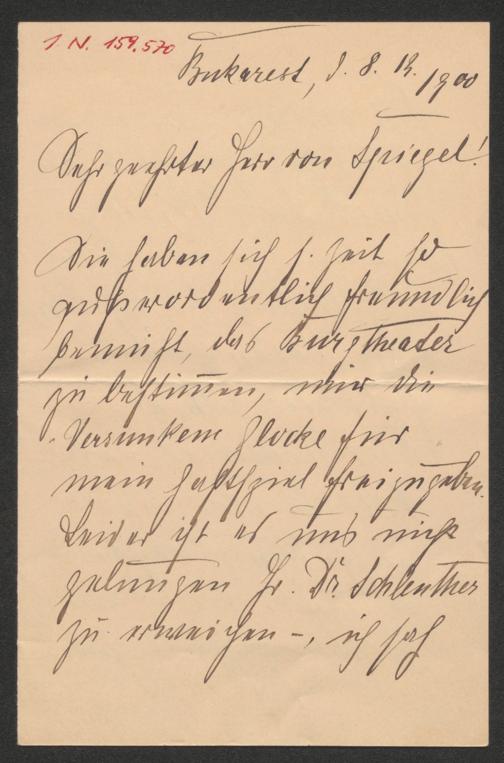 I. N. 159.570
Bukarest, d. 8. 12. 1900
Sehr geehrter Herr von Spiegel!
Sie haben sich s. Zeit so
außerordentlich freundlich
bemüht, das Burgtheater
zu bestimmen, mir die
Versunkene Glocke für
mein Gastspiel freizugeben.
Leider ist es uns nicht
gelungen Hr. Dr. Schlenther
zu erweichen –, ich sah